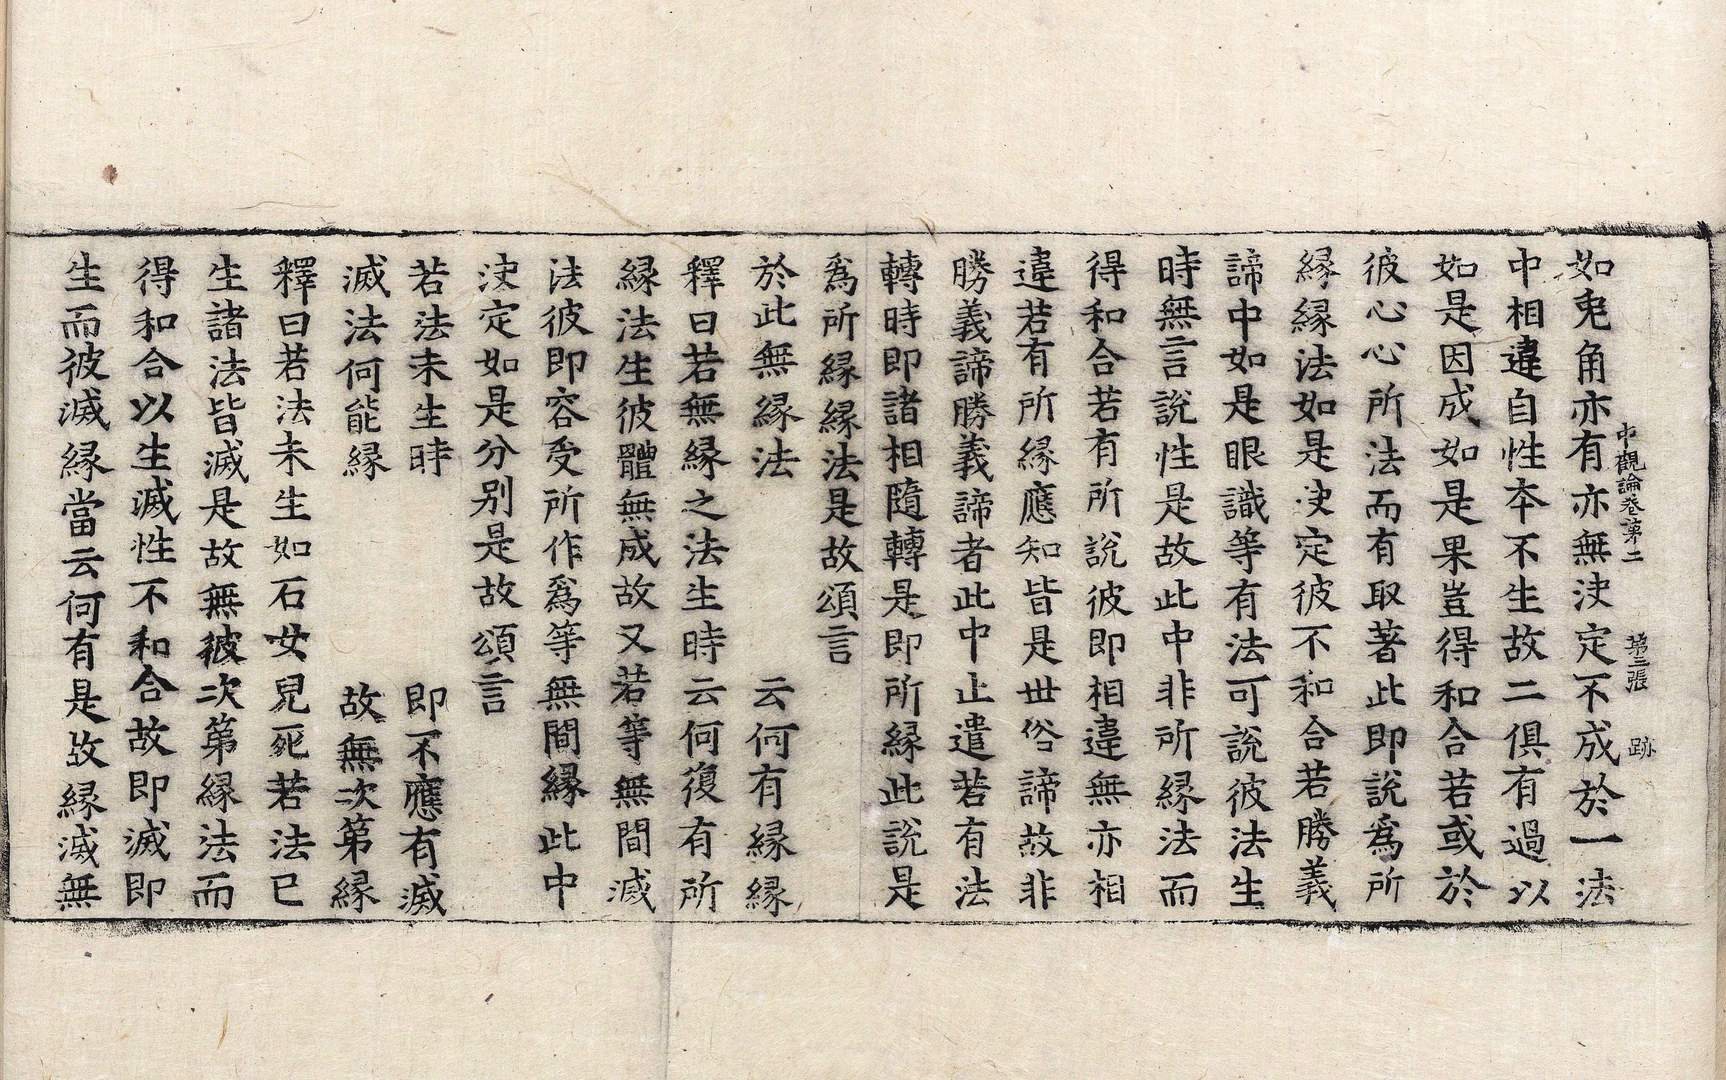 中觀論卷第二 第三張 跡
如兎角亦有亦無決定不成於一法
中相違自性本不生故二俱有過以
如是因成如是果豈得和合若或於
彼心心所法而有取著此即說爲所
緣緣法如是決定彼不和合若勝義
諦中如是眼識等有法可說彼法生
時無言說性是故此中非所緣法而
得和合若有所說彼即相違無亦相
違若有所緣應知皆是世俗諦故非
勝義諦勝義諦者此中止遣若有法
轉時即諸相隨轉是即所緣此說是
爲所緣緣法是故頌言
於此無緣法 云何有緣緣
釋曰若無緣之法生時云何復有所
緣法生彼體無成故又若等無間滅
法彼即容受所作爲等無間緣此中
決定如是分別是故頌言
若法未生時 即不應有滅
滅法何能緣 故無次第緣
釋曰若法未生如石女兒死若法已
生諸法皆滅是故無彼次第緣法而
得和合以生滅性不和合故即滅即
生而彼滅緣當云何有是故緣滅無